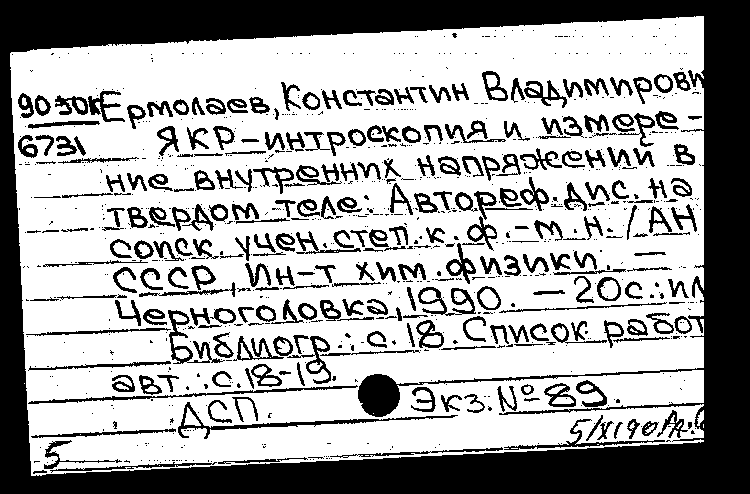 90-50к Ермолаев, Константин Владимирови
6731 ЯКР-интроскопия и измере-
ние внутренних напряжений в
твердом теле: Автореф. дис. на
соиск. учен. степ. к. ф.-м. н. / АН
СССР, Ин-т хим. физики. —
Черноголовка, 1990. — 20 с.: ил
Библиогр.: с. 18. Список работ
авт.: с. 18-19.
ДСП. Экз. № 89.
5